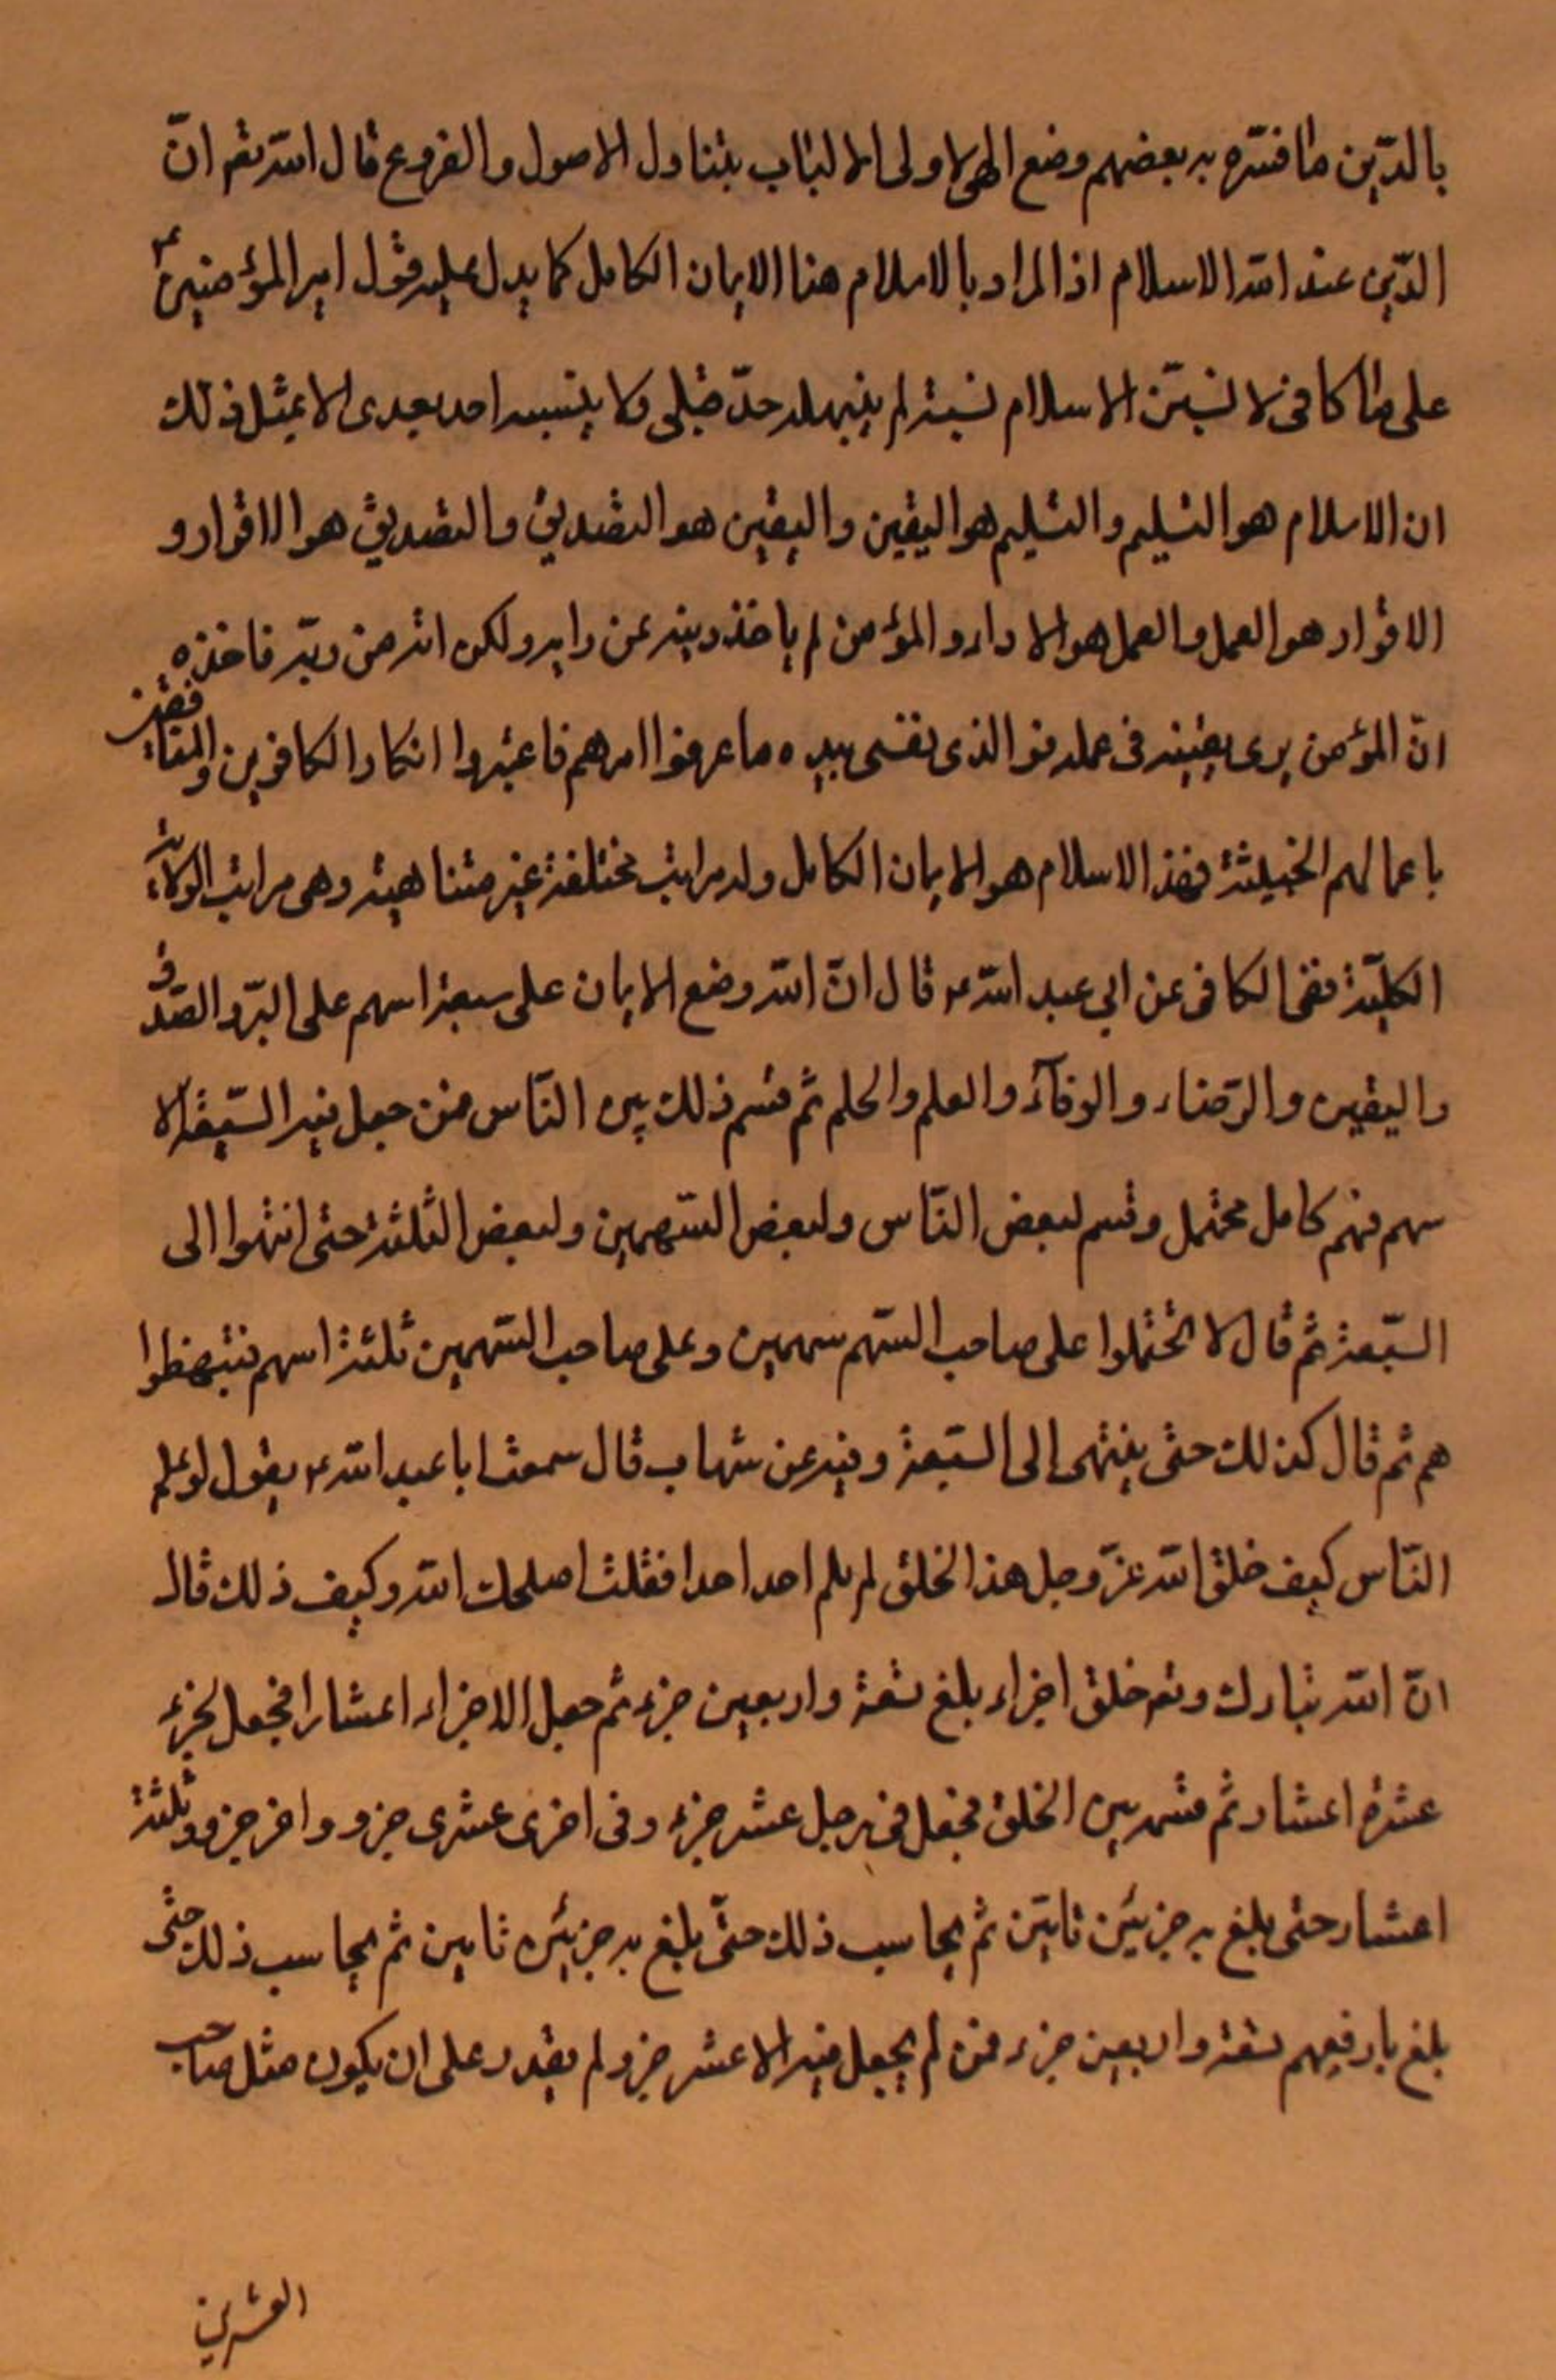 بالدّين ما فسّره به بعضهم وضع الهى لاولى الالباب يتناول الاصول والفروع قال الله تعم انّ
الدّين عند الله الاسلام اذ المراد بالاسلام هنا الايمان الكامل كما يدل عليه قول امير المؤمنين ع
على ما الكافى لانسبنّ الاسلام نسبة لم ينبهله حدّ قبلى ولا ينسبه احد بعدى الا بمثل ذلك
ان الاسلام هو التسليم والتسليم هو اليقين واليقين هو التصديق والتصديق هو الاقرار و
الاقرار هو العمل والعمل هو الاداء والمؤمن لم ياخذ دينه عن رايه ولكن اته من ربّه فاخذه
انّ المؤمن يرى يقينه فى عمله فو الذى نفسى بيده ما عرفوا امرهم فاعتبروا انكار الكافرين والمنافقين
باعمالهم الخبيثة فهذا الاسلام هو الايمان الكامل وله مراتب مختلفة غير متناهية وهى مراتب الولاية
الكليّة ففى الكافى عن ابي عبد الله ع قال انّ الله وضع الايمان على سبعة اسهم على البرّ والصّدق
واليقين والرّضاء والوفآء والعلم والحلم ثم قسم ذلك بين النّاس فمن جعل فيه السّبعة الا
سهم فهم كامل محتمل وقسم لبعض النّاس ولبعض السّهمين ولبعض الثلثة حتى انتهوا الى
السّبعة ثم قال لا تحتملوا على صاحب السّهم سهمين وعلى صاحب السّهمين ثلثة اسهم فتبهضظوا
هم ثم قال كذلك حتى ينتهى الى السّبعة وفيه عن شهاب قال سمعت ابا عبد الله ع يقول لو علم
النّاس كيف خلق الله عزّ وجل هذا الخلق لم يلم احد احدا فقلت اصلحك الله وكيف ذلك قال
انّ الله تبارك وتعم خلق اجزاء بلغ تسعة واربعين جزء ثم جعل الاجزاء اعشارا فجعل الجزء
عشرة اعشار ثم قسمه بين الخلق فجعل فى رجل عشر جزء وفى اخرى عشرى جزو واخر جزو وثلثة
اعشار حتى بلغ به جزئين تامّين ثم بحاسب ذلك حتّى بلغ به جزئين تامين ثم بحاسب ذلك حتى
بلغ بارفعهم تسعة واربعين جزء فمن لم يجعل فيه الا عشر جزو لم يقدر على ان يكون مثل صاحب
العشرين